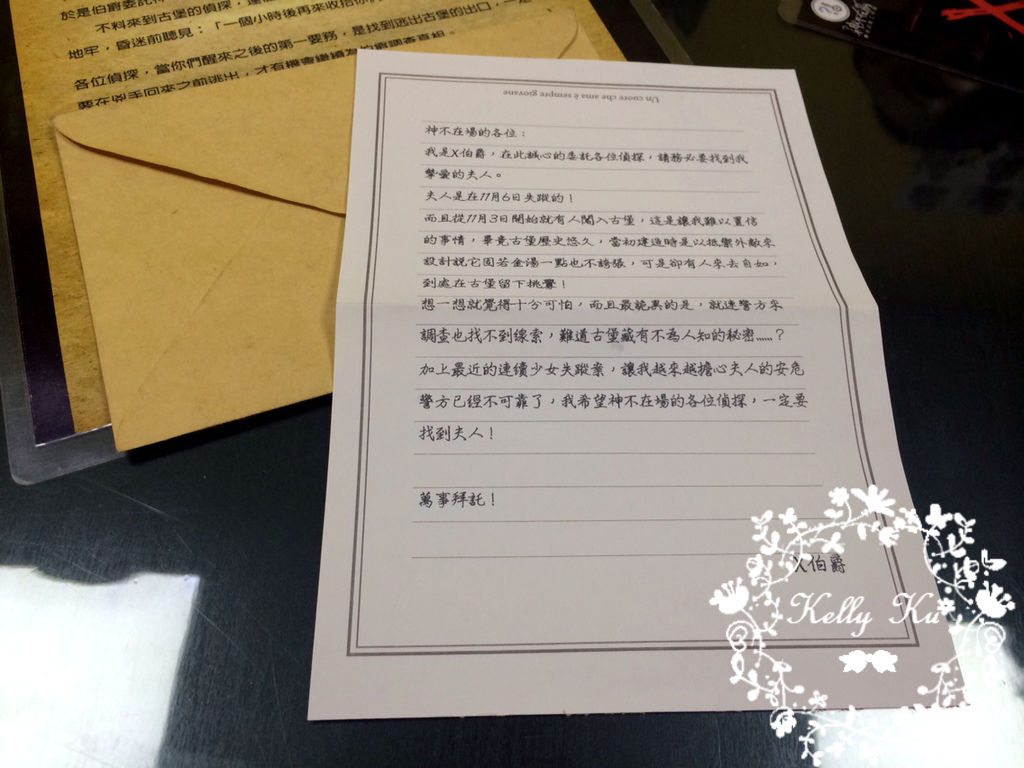 於是伯爵委託
不料來到古堡的偵探，
地牢，昏迷前聽見：「一個小時後再來收拾你
各位偵探，當你們醒來之後的第一要務，是找到逃出古堡的出口，一定
要在兇手回來之前逃出，才有機會繼續為伯爵調查真相。
Un cuore che ama è sempre giovane
神不在場的各位：
我是X伯爵，在此誠心的委託各位偵探，請務必要找到我
摯愛的夫人。
夫人是在11月6日失蹤的！
而且從11月3日開始就有人闖入古堡，這是讓我難以置信
的事情，畢竟古堡歷史悠久，當初建造時是以抵禦外敵來
設計說它固若金湯一點也不誇張，可是卻有人來去自如，
到處在古堡留下挑釁！
想一想就覺得十分可怕，而且最詭異的是，就連警方來
調查也找不到線索，難道古堡藏有不為人知的秘密……？
加上最近的連續少女失蹤案，讓我越來越擔心夫人的安危
警方已經不可靠了，我希望神不在場的各位偵探，一定要
找到夫人！
萬事拜託！
X伯爵
Kelly Ku